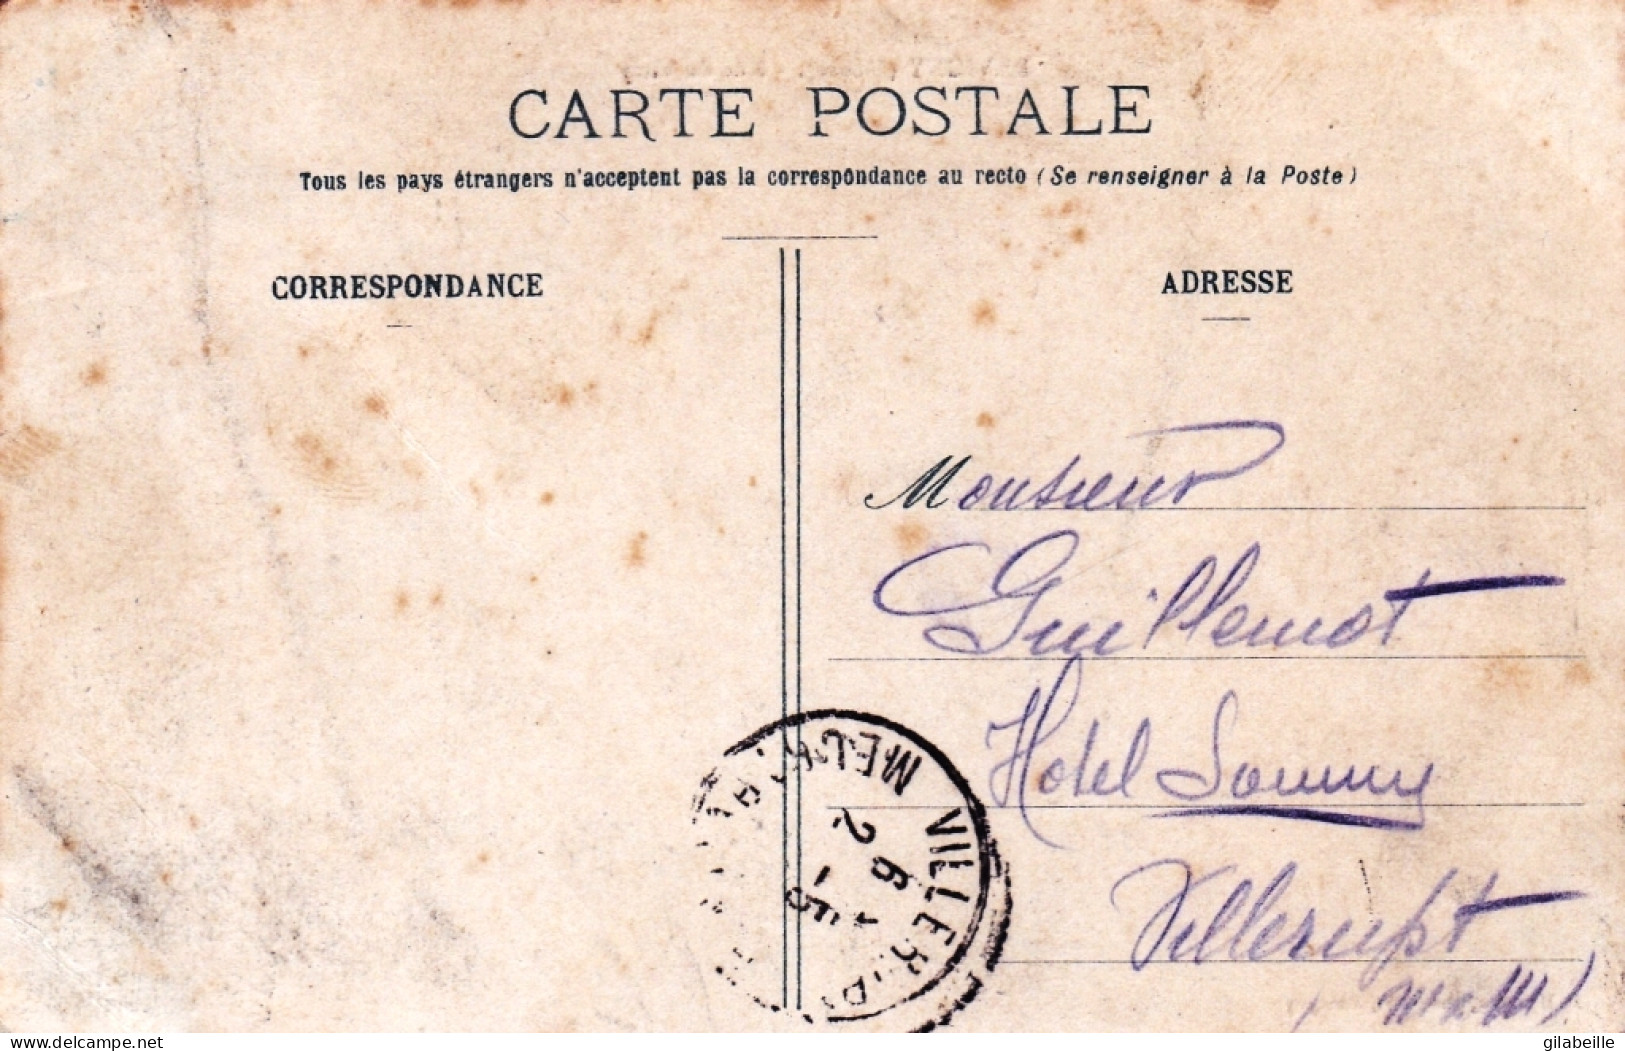 CARTE POSTALE
Tous les pays étrangers n'acceptent pas la correspondance au recto (Se renseigner à la Poste)
CORRESPONDANCE
ADRESSE
Monsieur
Guillemot
Hotel
Villerupt
(M & M)
VILLERUP
MEUR
delcampe.net
gilabeille